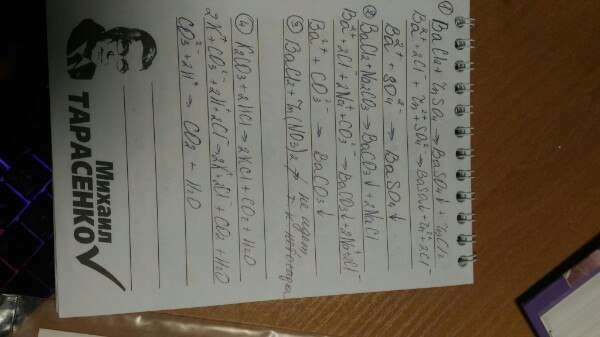 ① BaCl2 + ZnSO4 → BaSO4↓ + ZnCl2
Ba2+ + 2Cl- + Zn2+ + SO42- → BaSO4↓ + Zn2+ + 2Cl-
Ba2+ + SO42- → BaSO4↓
② BaCl2 + Na2CO3 → BaCO3↓ + 2NaCl
Ba2+ + 2Cl- + 2Na+ + CO32- → BaCO3↓ + 2Na+ + 2Cl-
Ba2+ + CO32- → BaCO3↓
③ BaCl2 + Zn(NO3)2 ↛ не идет,
т.к нет осадка
④ K2CO3 + 2HCl → 2KCl + CO2 + H2O
2K+ + CO32- + 2H+ + 2Cl- → 2K+ + 2Cl- + CO2 + H2O
CO32- + 2H+ → CO2 + H2O
Михаил
ТАРАСЕНКОV